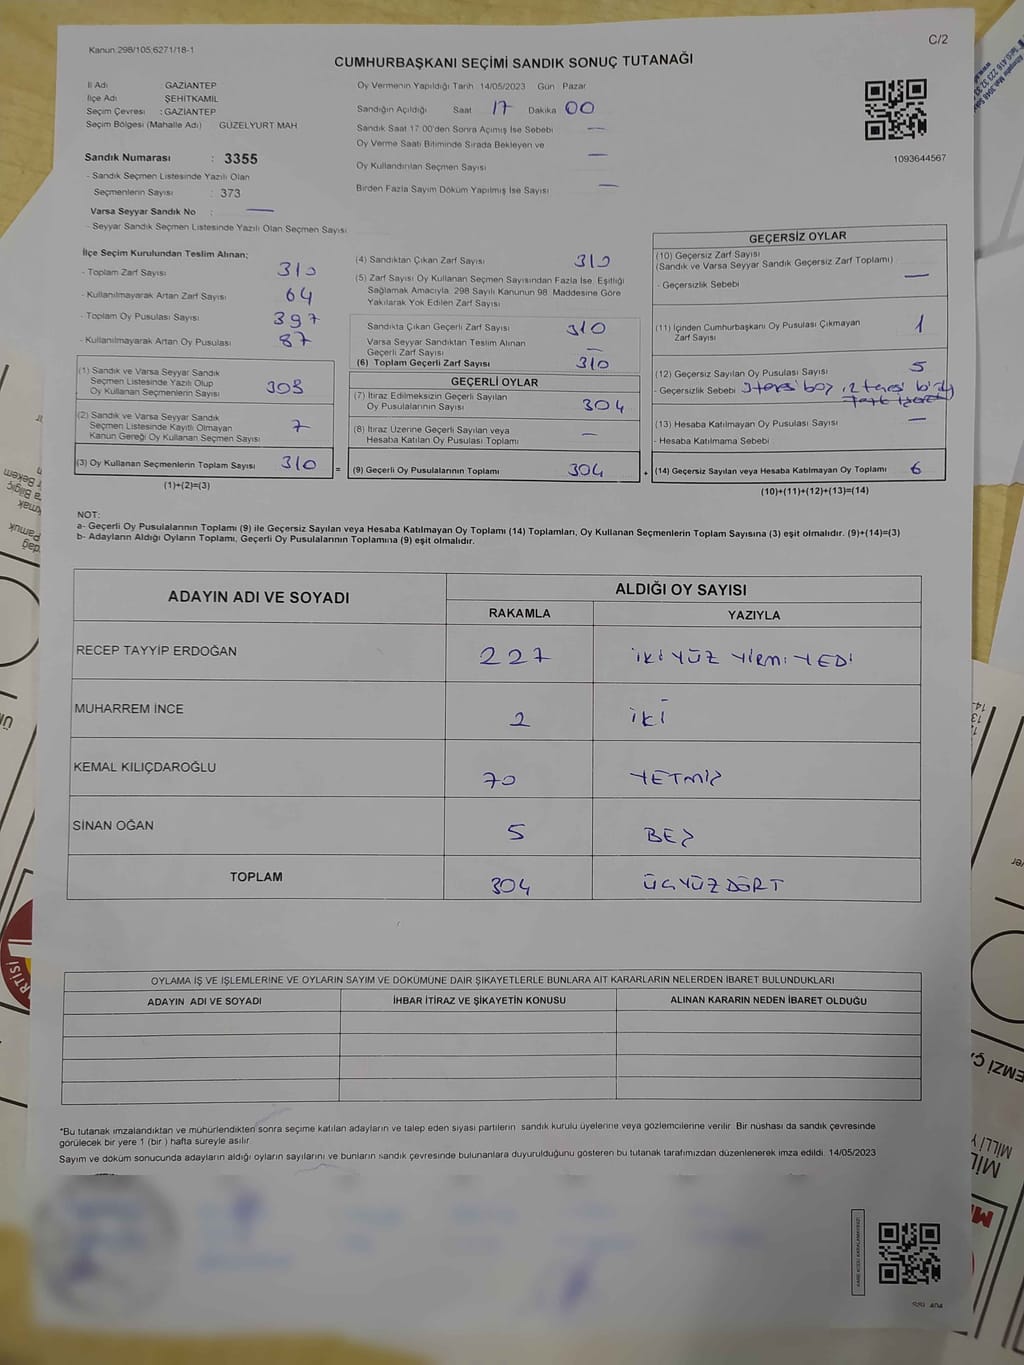 Kanun:298/105;6271/18-1
C/2
CUMHURBAŞKANI SEÇİMİ SANDIK SONUÇ TUTANAĞI
İl Adı GAZİANTEP
İlçe Adı ŞEHİTKAMİL
Seçim Çevresi : GAZİANTEP
Seçim Bölgesi (Mahalle Adı) GÜZELYURT MAH
Sandık Numarası : 3355
- Sandık Seçmen Listesinde Yazılı Olan
Seçmenlerin Sayısı : 373
Varsa Seyyar Sandık No : —
- Seyyar Sandık Seçmen Listesinde Yazılı Olan Seçmen Sayısı
Oy Vermenin Yapıldığı Tarih 14/05/2023 Gün Pazar
Sandığın Açıldığı Saat 17 Dakika 00
Sandık Saat 17:00'den Sonra Açılmış İse Sebebi —
Oy Verme Saati Bitiminde Sırada Bekleyen ve
Oy Kullandırılan Seçmen Sayısı —
Birden Fazla Sayım Döküm Yapılmış İse Sayısı —
1093644567
İlçe Seçim Kurulundan Teslim Alınan;
- Toplam Zarf Sayısı 310
- Kullanılmayarak Artan Zarf Sayısı 64
- Toplam Oy Pusulası Sayısı 397
- Kullanılmayarak Artan Oy Pusulası 87
(1) Sandık ve Varsa Seyyar Sandık
Seçmen Listesinde Yazılı Olup
Oy Kullanan Seçmenlerin Sayısı 303
(2) Sandık ve Varsa Seyyar Sandık
Seçmen Listesinde Kayıtlı Olmayan
Kanun Gereği Oy Kullanan Seçmen Sayısı 7
(3) Oy Kullanan Seçmenlerin Toplam Sayısı 310
(1)+(2)=(3)
(4) Sandıktan Çıkan Zarf Sayısı 310
(5) Zarf Sayısı Oy Kullanan Seçmen Sayısından Fazla İse, Eşitliği
Sağlamak Amacıyla, 298 Sayılı Kanunun 98. Maddesine Göre
Yakılarak Yok Edilen Zarf Sayısı
Sandıkta Çıkan Geçerli Zarf Sayısı 310
Varsa Seyyar Sandıktan Teslim Alınan
Geçerli Zarf Sayısı —
(6) Toplam Geçerli Zarf Sayısı 310
GEÇERLİ OYLAR
(7) İtiraz Edilmeksizin Geçerli Sayılan
Oy Pusulalarının Sayısı 304
(8) İtiraz Üzerine Geçerli Sayılan veya
Hesaba Katılan Oy Pusulası Toplamı —
= (9) Geçerli Oy Pusulalarının Toplamı 304
GEÇERSİZ OYLAR
(10) Geçersiz Zarf Sayısı
(Sandık ve Varsa Seyyar Sandık Geçersiz Zarf Toplamı) —
- Geçersizlik Sebebi
(11) İçinden Cumhurbaşkanı Oy Pusulası Çıkmayan
Zarf Sayısı 1
(12) Geçersiz Sayılan Oy Pusulası Sayısı 5
- Geçersizlik Sebebi 3 tanesi boş, 2 tanesi
(13) Hesaba Katılmayan Oy Pusulası Sayısı —
- Hesaba Katılmama Sebebi
+ (14) Geçersiz Sayılan veya Hesaba Katılmayan Oy Toplamı 6
(10)+(11)+(12)+(13)=(14)
NOT:
a- Geçerli Oy Pusulalarının Toplamı (9) ile Geçersiz Sayılan veya Hesaba Katılmayan Oy Toplamı (14) Toplamları, Oy Kullanan Seçmenlerin Toplam Sayısına (3) eşit olmalıdır. (9)+(14)=(3)
b- Adayların Aldığı Oyların Toplamı, Geçerli Oy Pusulalarının Toplamına (9) eşit olmalıdır.
ADAYIN ADI VE SOYADI
ALDIĞI OY SAYISI
RAKAMLA YAZIYLA
RECEP TAYYİP ERDOĞAN 227 İKİ YÜZ YİRMİ YEDİ
MUHARREM İNCE 2 İKİ
KEMAL KILIÇDAROĞLU 70 YETMİŞ
SİNAN OĞAN 5 BEŞ
TOPLAM 304 ÜÇYÜZ DÖRT
OYLAMA İŞ VE İŞLEMLERİNE VE OYLARIN SAYIM VE DÖKÜMÜNE DAİR ŞİKAYETLERLE BUNLARA AİT KARARLARIN NELERDEN İBARET BULUNDUKLARI
ADAYIN ADI VE SOYADI İHBAR İTİRAZ VE ŞİKAYETİN KONUSU ALINAN KARARIN NEDEN İBARET OLDUĞU
*Bu tutanak imzalandıktan ve mühürlendikten sonra seçime katılan adayların ve talep eden siyasi partilerin sandık kurulu üyelerine veya gözlemcilerine verilir. Bir nüshası da sandık çevresinde
görülecek bir yere 1 (bir ) hafta süreyle asılır.
Sayım ve döküm sonucunda adayların aldığı oyların sayılarını ve bunların sandık çevresinde bulunanlara duyurulduğunu gösteren bu tutanak tarafımızdan düzenlenerek imza edildi. 14/05/2023